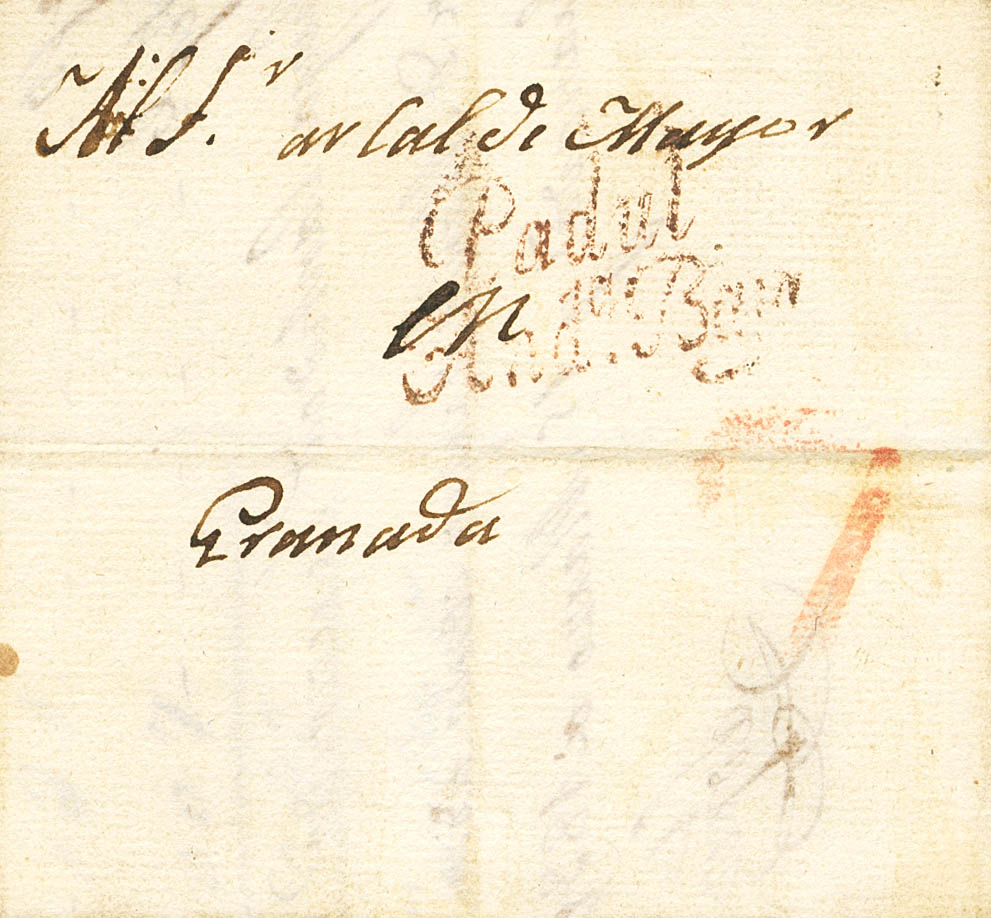 Al S.r arlalde Mayor
Padul
en
And.a Baxa
Granada